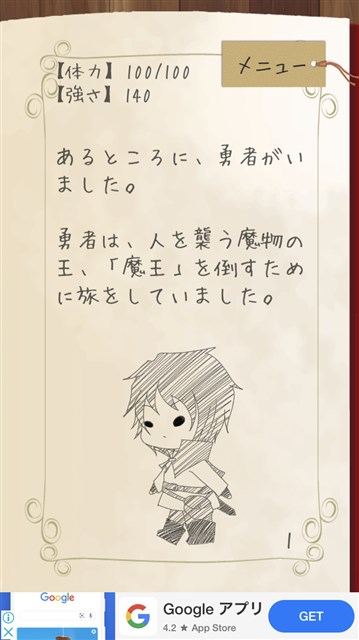 【体力】100/100
【強さ】140
メニュー
あるところに、勇者がい
ました。
勇者は、人を襲う魔物の
王、「魔王」を倒すため
に旅をしていました。
1
Google
Google アプリ
4.2 ★ App Store
GET